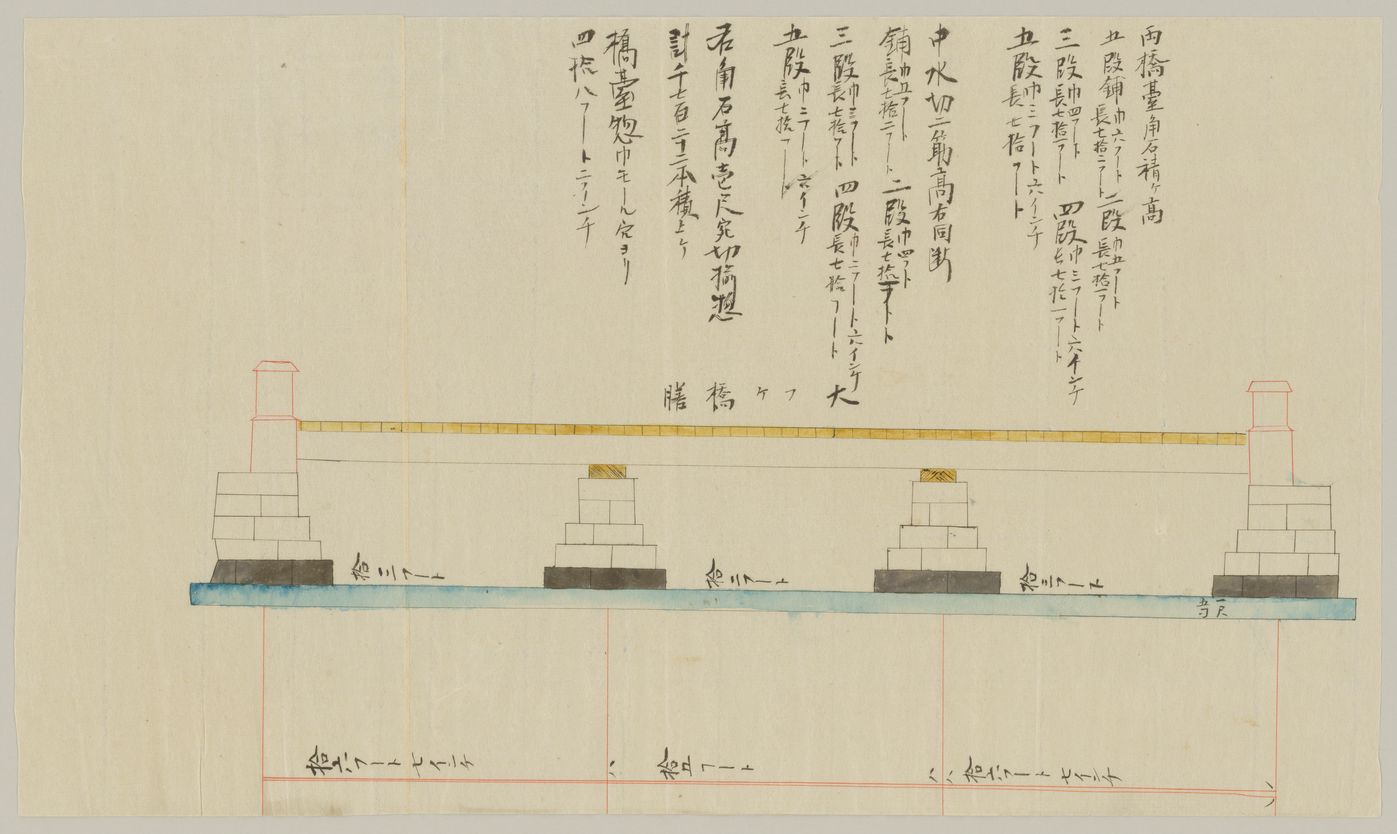 両橋臺角石積ヶ高
五段鋪巾六フート長七拾二フート 二段巾五フート長七拾一フート
三段巾四フート長七拾フート 四段巾三フート六インチ長七拾一フート
五段巾三フート六インチ長七拾フート
中水切二箇高右同断
鋪巾五フート長七拾二フート 二段巾四フート長七拾一フート
三段巾三フート長七拾フート 四段巾二フート六インチ長七拾フート
五段巾二フート六インチ長七拾フート
右角石高壱尺宛切揃惣
計千七百二十二本積上ケ
橋臺惣巾モール穴ヨリ
四拾八フート二インチ
大フケ橋膳
拾三フート
拾二フート
拾三フート
一尺五寸
拾六フート七インチ
拾五フート
拾六フート七インチ